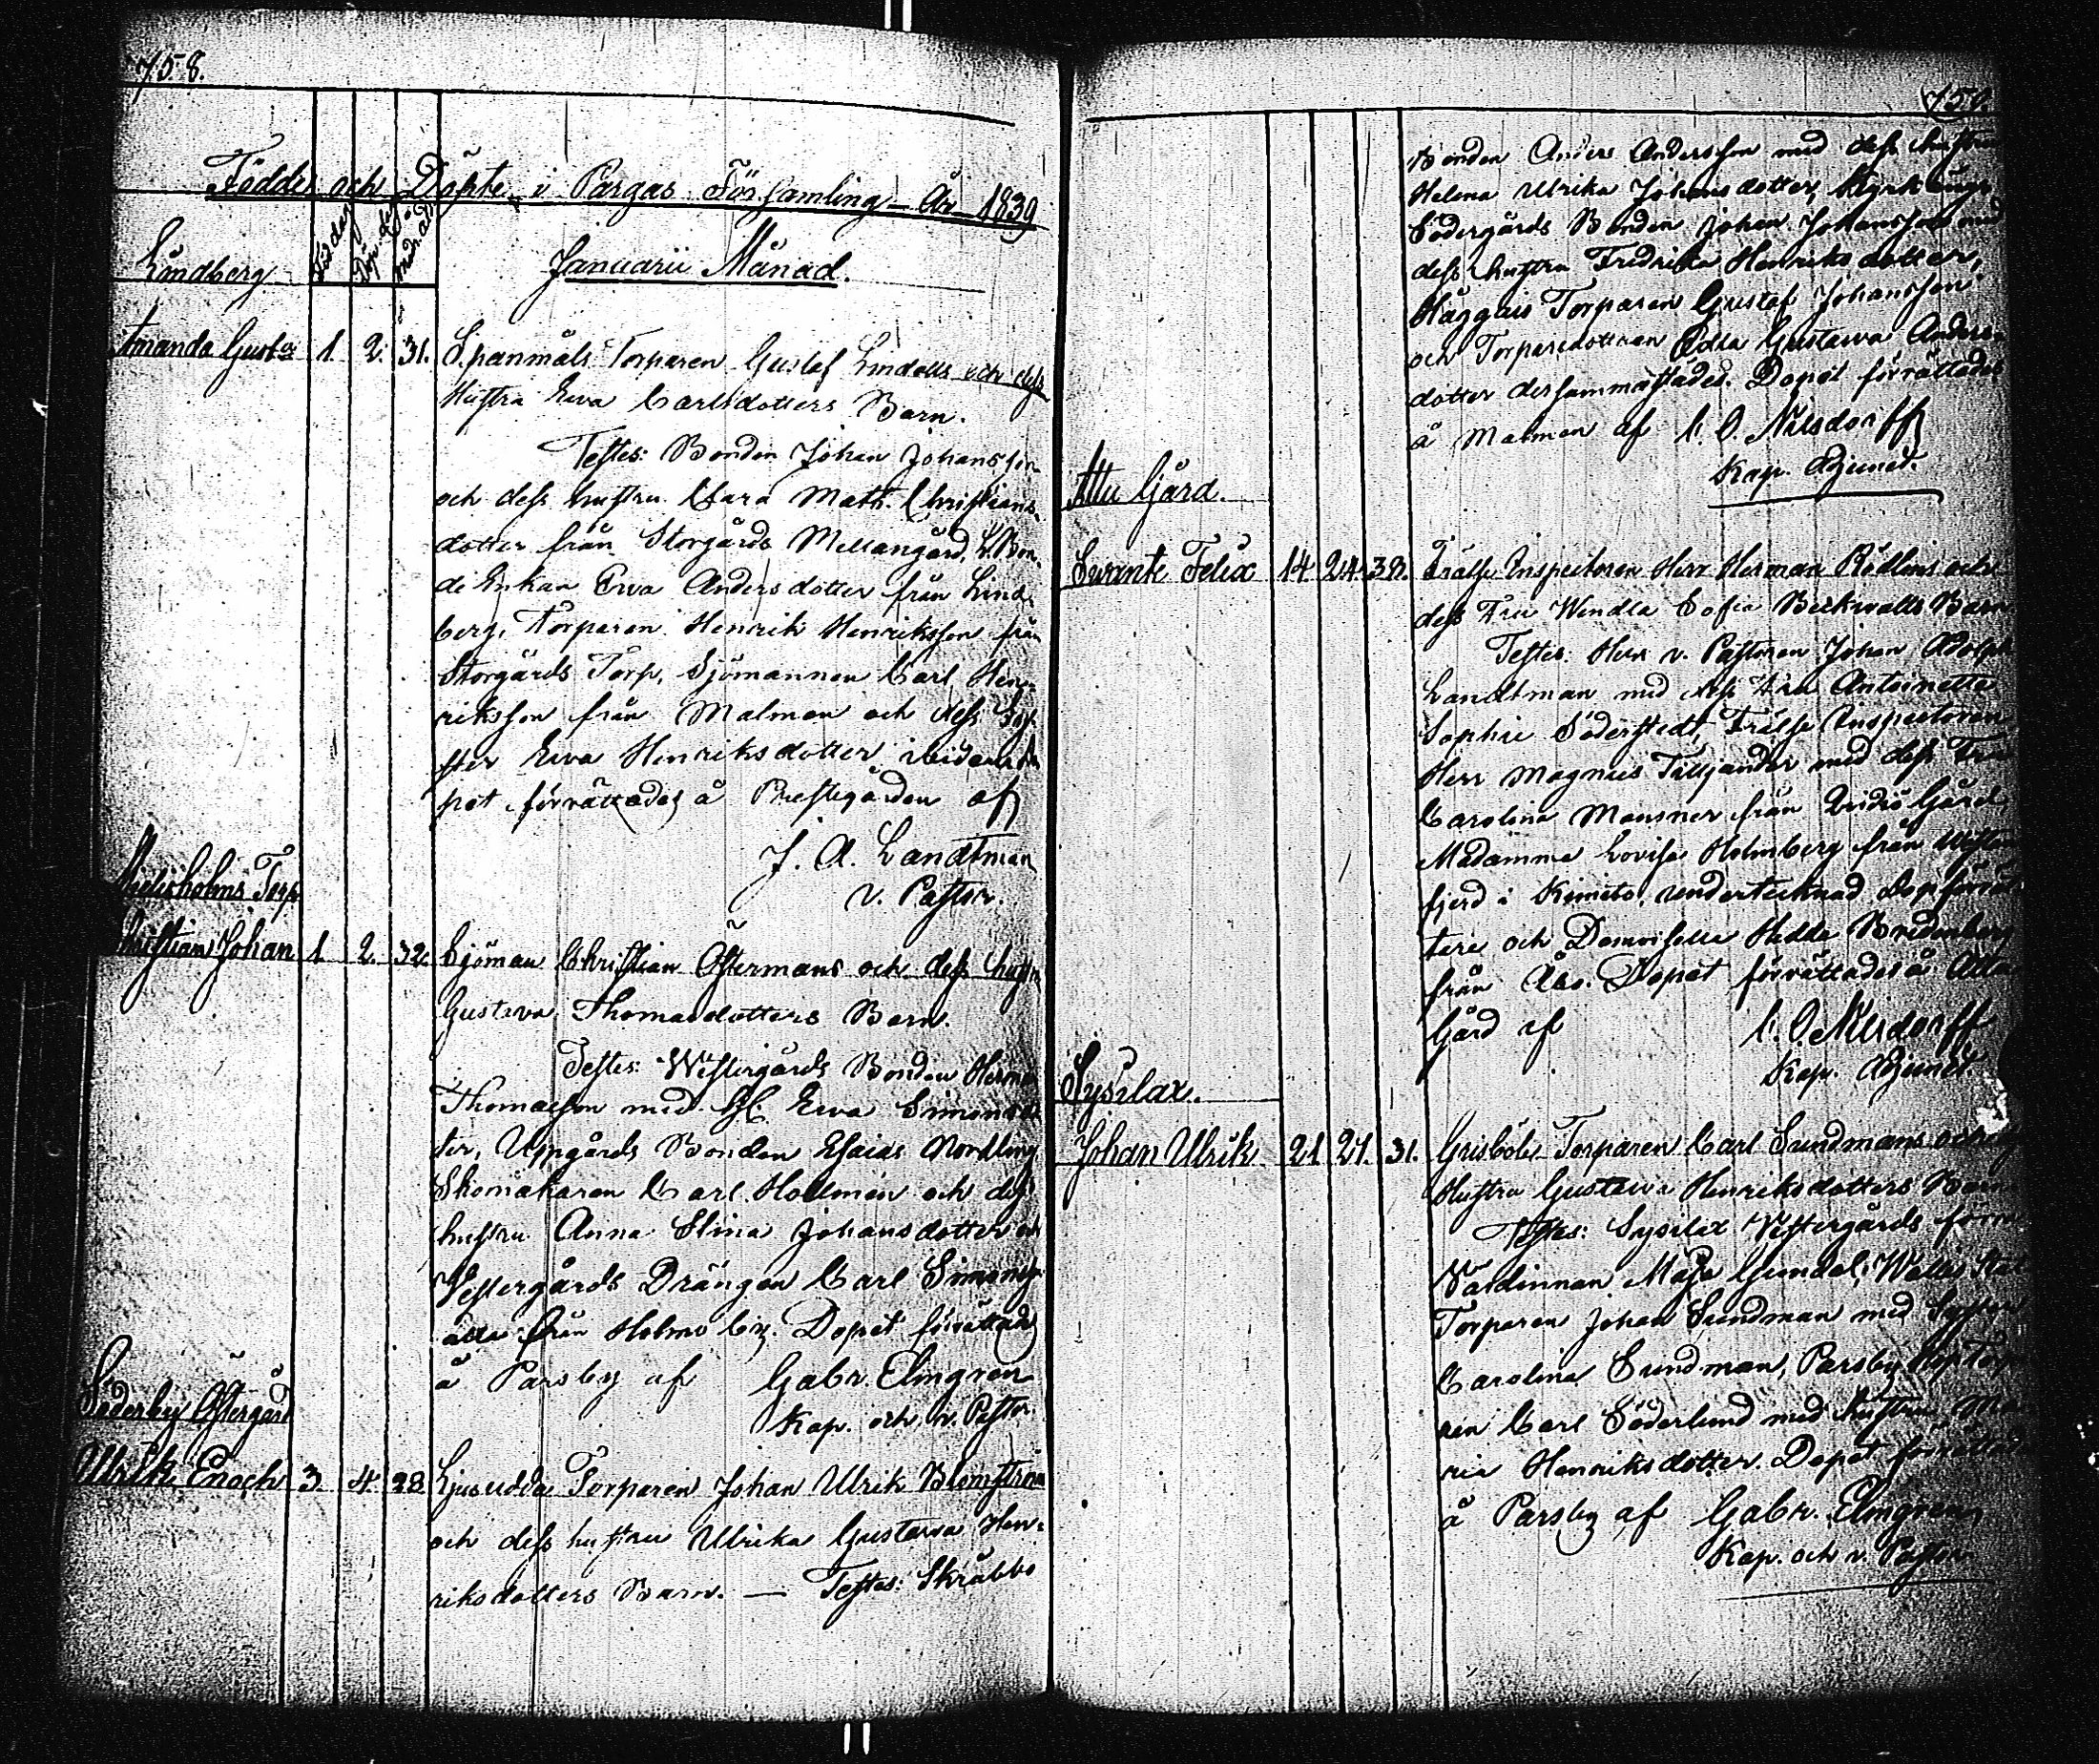 758.
Födde och Döpte i Pargas Församling År 1839
Januarii Månad.
Lindberg
Amanda Gust:a 1. 2. 31. Spanmåls Torparen Gustaf Lindells och dess
Hustru Ewa Carlsdotters Barn.
Testes: Bonden Johan Johansson
och dess hustru Clara Math. Christians-
dotter från Storgårds Mellangård, Bon-
de Enkan Ewa Andersdotter från Lind-
berg, Torparen Henrik Henriksson från
Storgårds Torp, Sjömannen Carl Hen-
riksson från Malmen och dess Sy-
ster Ewa Henriksdotter ibidem
pet förrättades å Prestgården af
J. A. Landtman
v. Pastor.
Torp
Christian Johan 1. 2. 32. Sjöman Christian Östermans och dess hustru
Gustava Thomasdotters Barn.
Testes: Westergårds Bonden Herman
Thomasson med H. Ewa Simonsdot-
ter, Uppgårds Bonden Esaias Nordling
Skomakaren Carl Hollmén och dess
hustru Anna Stina Johansdotter och
Westergårds Drängen Carl Simonss.
alla från Holmo by. Dopet förrättades
å Parsby af Gabr. Elmgren
Kap. och v. Pastor.
Söderby Östergård
Ulrik Enoch 3. 4. 28. Ljusudda Torparen Johan Ulrik Blomström
och dess hustru Ulrika Gustava Hen-
riksdotters Barn. — Testes: Skräbbo
759
Bonden Anders Andersson med dess hustru
Helena Ulrika Johansdotter,
Södergårds Bonden Johan Johansson med
dess hustru Fredrika Henriksdotter,
Häggais Torparen Gustaf Johansson
och Torparedottren Edla Gustava Anders-
dotter dersammastädes. Dopet förrättades
å Malmen af C. O. Nilsdorff
Kap. Adjunct.
Attu Gård.
Svante Felix 14 24 38. Frälse Inspectoren Herr Herman Rödlins och
dess Fru Wendla Sofia Beckwalls Barn
Testes: Herr v. Pastoren Johan Adolph
Landtman med dess Fru Antoinette
Sophie Söderstedt, Frälse Inspectoren
Herr Magnus Tilljander med dess Fru
Carolina Mansner från Qvidiö Gård,
Madamme Lovisa Holmberg från
fjerd i Kimito, undertecknad Dopförrät-
tare och Demoiselle Hedda Bredenberg
från Åbo. Dopet förrättades å Attu
Gård af C. O. Nilsdorff
Kap. Adjunct
Sysilax.
Johan Ulrik 21 27. 31. Grisböle Torparen Carl Sundmans och
Hustru Gustava Henriksdotters Barn
Testes: Sysilax Westergårds förra
Värdinnan Maja Gundel,
Torparen Johan Sundman med Syster
Carolina Sundman, Parsby Torpa-
ren Carl Söderlund med hustru Ma-
ria Henriksdotter. Dopet förrättades
å Parsby af Gabr. Elmgren
Kap. och v. Pastor